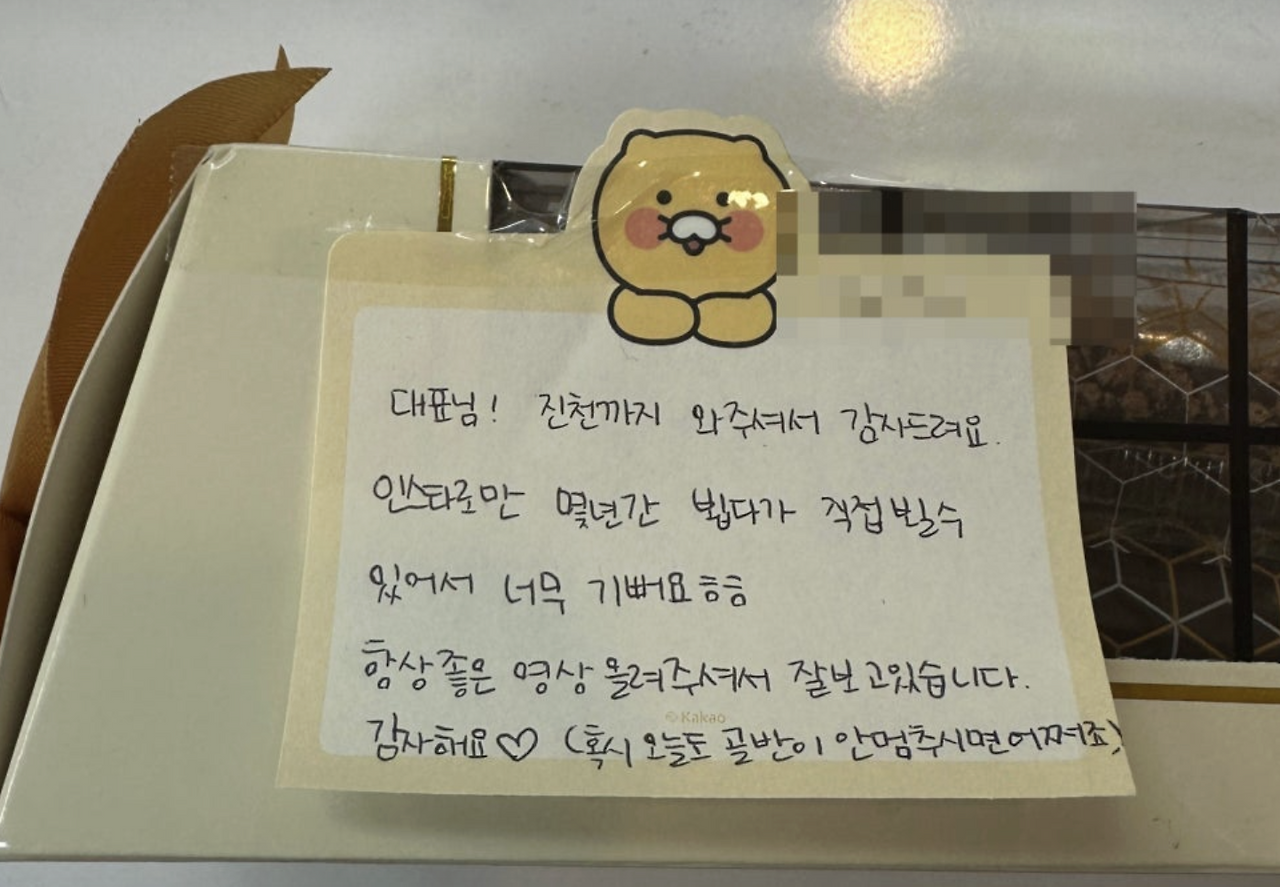 대표님! 진천까지 와주셔서 감사드려요.
인스타로만 몇년간 뵙다가 직접 뵐수
있어서 너무 기뻐요 흐흐
항상 좋은 영상 올려주셔서 잘보고있습니다.
© Kakao
감사해요♡ (혹시 오늘도 골반이 안멈추시면 어쩌죠)